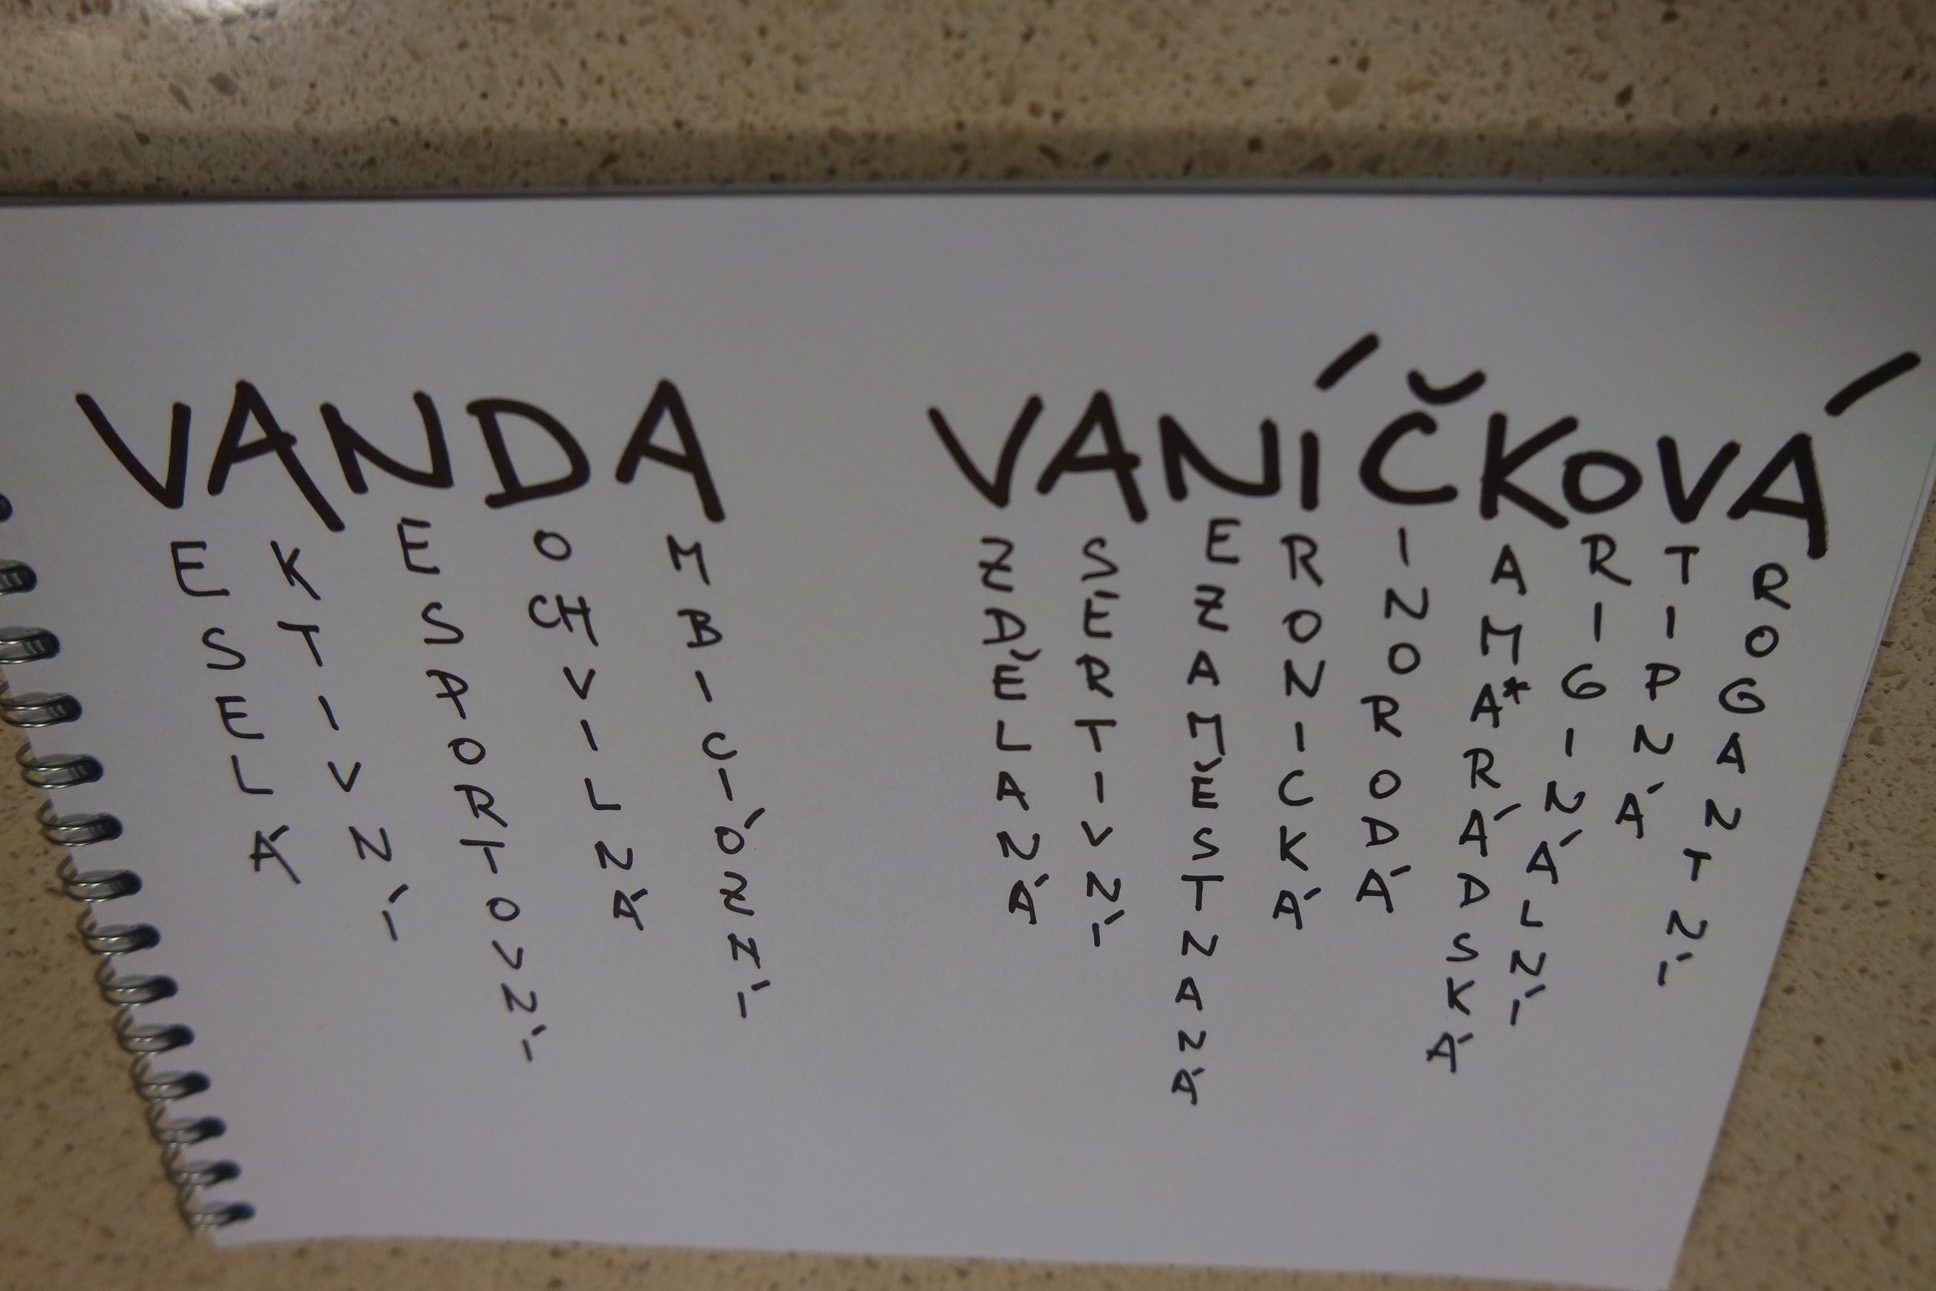 VANDA VANÍČKOVÁ
ESELÁ
KTIVNÍ
ESPORTOVNÍ
OCHVILNÁ
MBICIÓZNÍ
ZDĚLANÁ
SÉRTIVNÍ
EZAMĚSTNANÁ
RONICKÁ
INORODÁ
AMA*RÁDSKÁ
RIGINÁLNÍ
TIPNÁ
ROGANTNÍ